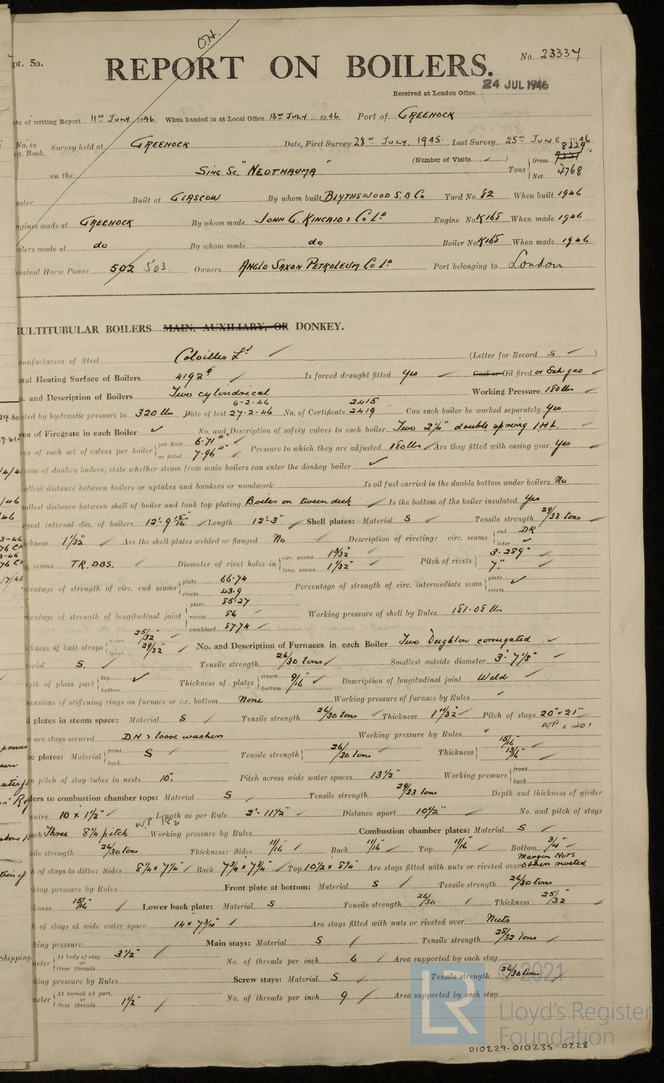 O.H.
pt. 5a.
No. 23337
REPORT ON BOILERS.
24 JUL 1946
Received at London Office
te of writing Report 11th July 1946 When handed in at Local Office 13th July 1946 Port of GREENOCK
No. in Survey held at GREENOCK Date, First Survey 28th July, 1945 Last Survey 25th June 1946
g. Book. (Number of Visits ) Gross 8229
on the Sing Sc. "NEOTHAUMA" Tons Net 4768
Built at GLASGOW By whom built BLYTHSWOOD S.B. Co Yard No. 82 When built 1946
gines made at GREENOCK By whom made JOHN G. KINCAID & Co Ld Engine No. K165 When made 1946
ilers made at do By whom made do Boiler No. K165 When made 1946
minal Horse Power 502 503 Owners ANGLO SAXON PETROLEUM Co Ld Port belonging to London
ULTITUBULAR BOILERS MAIN, AUXILIARY, OR DONKEY.
nufacturers of Steel Colvilles Ld (Letter for Record S )
tal Heating Surface of Boilers 4192 Is forced draught fitted Yes Coal or Oil fired or Exh gas
. and Description of Boilers Two cylindrical Working Pressure 180 lbs
6-2-46 2415
ted by hydraulic pressure to 320 lbs Date of test 27-2-46 No. of Certificate 2419 Can each boiler be worked separately Yes
ea of Firegrate in each Boiler No. and Description of safety valves to each boiler Two 2¼" double spring I.H.L.
ea of each set of valves per boiler per Rule 6.71 as fitted 7.96 Pressure to which they are adjusted 180 lbs Are they fitted with easing gear Yes
case of donkey boilers, state whether steam from main boilers can enter the donkey boiler
allest distance between boilers or uptakes and bunkers or woodwork Is oil fuel carried in the double bottom under boilers No
allest distance between shell of boiler and tank top plating Boiler on tween deck Is the bottom of the boiler insulated Yes
gest internal dia. of boilers 12'-9 15/16" Length 12'-3" Shell plates: Material S Tensile strength 29/33 tons
ckness 1 1/32" Are the shell plates welded or flanged No Description of riveting: circ. seams end DR inter
seams TR. DBS. Diameter of rivet holes in circ. seams 1 3/32" long. seams 1 1/32" Pitch of rivets 3.289" 7"
rcentage of strength of circ. end seams plate 66.74 rivets 43.9 Percentage of strength of circ. intermediate seam plate rivets
centage of strength of longitudinal joint plate 85.27 rivets 86 combined 87.74 Working pressure of shell by Rules 181.08 lbs
ickness of butt straps outer 25/32" inner 29/32" No. and Description of Furnaces in each Boiler Two Deighton corrugated
erial S. Tensile strength 26/30 tons Smallest outside diameter 3'-7⅛"
gth of plain part top bottom Thickness of plates crown bottom 9/16" Description of longitudinal joint Weld
mensions of stiffening rings on furnace or c.c. bottom None Working pressure of furnace by Rules
d plates in steam space: Material S Tensile strength 26/30 tons Thickness Pitch of stays 20" × 21"
WP = 201
are stays secured D.N. & loose washers Working pressure by Rules
e plates: Material front back S Tensile strength 26/30 tons Thickness 15/16" 13/16"
n pitch of stay tubes in nests 10" Pitch across wide water spaces 13½" Working pressure front back
ders to combustion chamber tops: Material S Tensile strength 29/33 tons Depth and thickness of girder
entre 10 × 1½" Length as per Rule 2'-11½" Distance apart 10½" No. and pitch of stays
ach Three 8¼ pitch Working pressure by Rules Combustion chamber plates: Material S
sile strength 26/30 tons Thickness: Sides 11/16" Back 11/16" Top 11/16" Bottom 3/4"
h of stays to ditto: Sides 8¼ × 7¼" Back 7¾" × 7¾" Top 10½ × 8¼" Are stays fitted with nuts or riveted over Margin Nuts others riveted
king pressure by Rules Front plate at bottom: Material S Tensile strength 26/30 tons
kness 15/16" Lower back plate: Material S Tensile strength 26/30 Thickness 25/32"
h of stays at wide water space 14 × 7¾" Are stays fitted with nuts or riveted over Nuts
king pressure Main stays: Material S Tensile strength 28/32 tons
meter At body of stay or Over threads 3½" No. of threads per inch 6 Area supported by each stay
king pressure by Rules Screw stays: Material S Tensile strength 26/30 tons
meter At turned off part or Over threads 1½" No. of threads per inch 9 Area supported by each stay
Shipping
LR
© 2021
Lloyd's Register
Foundation
010229-010235-0228